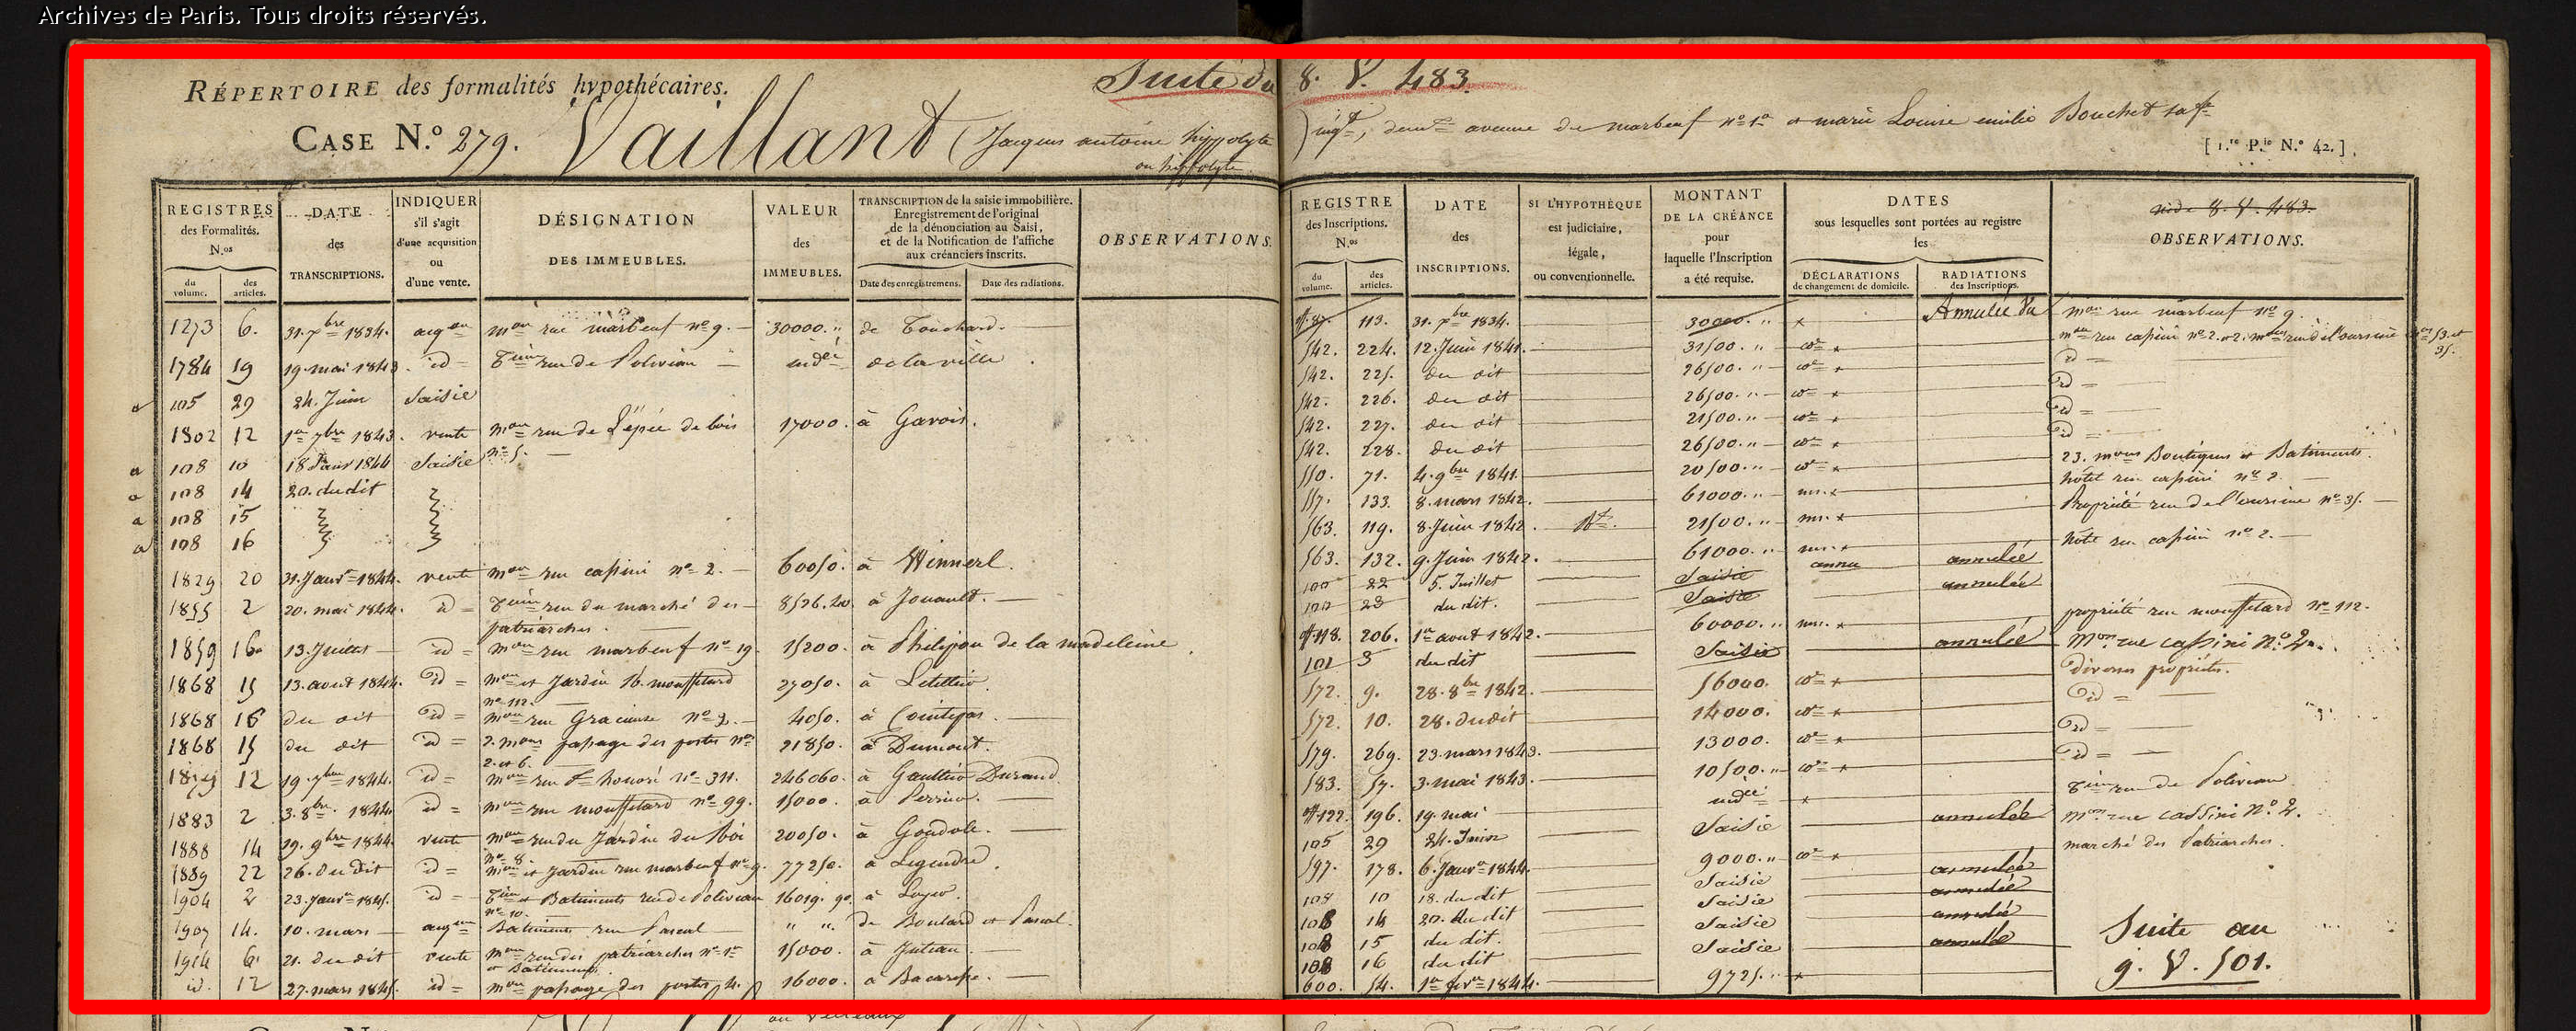 Archives de Paris. Tous droits réservés.
RÉPERTOIRE des formalités hypothécaires.
Suite du 8. V. 483.
CASE N.o 279. Vaillant (Jacques antoine hippolyte
ou hippolyte
) avenue de marbeuf no 1er et marie Louise emilie Bouchet sa fe
[ 1.re P.ie N.o 42.]
REGISTRES des Formalités. N.os
du volume.
des articles.
DATE des TRANSCRIPTIONS.
INDIQUER s'il s'agit d'une acquisition ou d'une vente.
DÉSIGNATION DES IMMEUBLES.
VALEUR des IMMEUBLES.
TRANSCRIPTION de la saisie immobilière.
Enregistrement de l'original
de la dénonciation au Saisi,
et de la Notification de l'affiche
aux créanciers inscrits.
Date des enregistremens.
Date des radiations.
OBSERVATIONS.
1273 6. 31. xbre 1834. acqon mon rue marbeuf no 9. 30000. " de Touchard.
1784 19 19. mai 1843. id rue de Poliveau de la ville
a 105 29 24. Juin Saisie
1802 12 1er 7bre 1843. vente mon rue de L'épée de bois 17000. à Gavois.
no 5.
a 108 10 18 Janv 1844 Saisie
a 108 14 20. du dit
a 108 15
a 108 16
1829 20 31. Janvr 1844. vente mon rue cassini no 2. 60050. à Winnerl.
1855 2 20. mai 1844. id rue du marché des 8526.20 à Jouault.
patriarches.
1859 16 13. Juillet id mon rue marbeuf no 19. 15200. à Philipon de la madeleine
1868 15 13. aout 1844. id mon et Jardin r. mouffetard 27050. à
no 112.
1868 16 du dit id mon rue Gracieuse no 2. 4050. à
1868 15 du dit id 2. mons passage des postes nos 21850. à Dumont.
2. et 6.
1879 12 19. 7bre 1844. id mon rue St honoré no 311. 246060. à Gaultier Durand.
1883 2 3. 8bre 1844. id mon rue mouffetard no 99. 15000. à Perrin.
1888 14 19. 9bre 1844. vente mon rue du Jardin du Roi 20050. à Gondole.
no 8.
1889 22 26. du dit id mon et Jardin rue marbeuf no 9. 77250. à Legendre.
1904 2 23. Janvr 1845. id et Batiments rue de Poliveau 16019. 90 à Loyer.
no 10.
1907 14. 10. mars acqon Batiments rue Pascal " " de Boulard et Pascal.
1914 6. 21. du dit vente mon rue des patriarches no 1er 15000. à Juteau.
et Batiments.
id. 12 27. mars 1845. id mon passage des postes 4. 16000. à
REGISTRE des Inscriptions. N.os
du volume.
des articles.
DATE des INSCRIPTIONS.
SI L'HYPOTHÈQUE est judiciaire, légale, ou conventionnelle.
MONTANT DE LA CRÉANCE pour laquelle l'Inscription a été requise.
DATES sous lesquelles sont portées au registre les
DÉCLARATIONS de changement de domicile.
RADIATIONS des Inscriptions.
vide 8. V. 483.
OBSERVATIONS.
113. 31. xbre 1834. 30000. " Annulée du mon rue marbeuf no 9.
542. 224. 12. Juin 1841. 31500. " mon rue cassini no 2. et 2. mons rue de l'oursine nos 53. et 35.
542. 225. du dit 26500. " id
542. 226. du dit 26500. " id
542. 227. du dit 21500. " id
542. 228. du dit 26500. " id
550. 71. 4. 9bre 1841. 20500. " 23. mons Boutiques et Batiments.
557. 133. 8. mars 1842. 61000. " hôtel rue cassini no 2.
563. 119. 8. Juin 1842. 21500. " Propriété rue de l'oursine no 35.
563. 132. 9. Juin 1842. 61000. " hôtel rue cassini no 2.
100 22 5. Juillet Saisie annu annulée
100 23 du dit. Saisie annulée
118. 206. 1er aout 1842. 60000. " propriété rue mouffetard no 112.
101 3 du dit Saisie annulée Mon rue cassini No 2.
572. 9. 28. 8bre 1842. 56000. diverses propriétés.
572. 10. 28. du dit 14000. id
579. 269. 23. mars 1843. 13000. id
583. 57. 3. mai 1843. 10500. " id
122. 196. 19. mai rue de Poliveau
105 29 24. Juin Saisie annulée Mon rue cassini No 2.
597. 178. 6. Janvr 1844. 9000. " marché des Patriarches.
108 10 18. du dit Saisie annulée
108 14 20. du dit Saisie annulée
108 15 du dit. Saisie annulée
108 16 du dit Saisie annulée
600. 54. 1er fevr 1844. 9725. "
Suite au
9. V. 501.